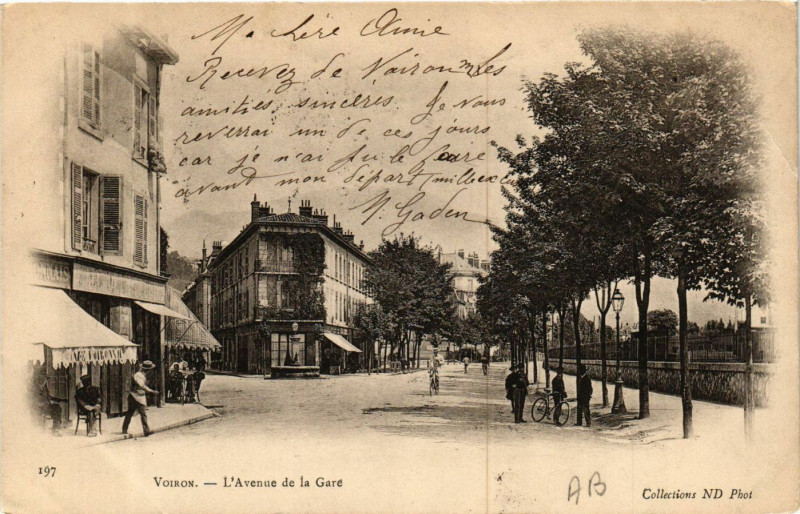 Ma chère Aimée
Recevez de Voiron les
amitiés sincères Je vous
reverrai un de ces jours
car je n'ai pu le faire
avant mon départ mille
M. Gaden
CAFÉ
197
VOIRON. — L'Avenue de la Gare
AB
Collections ND Phot